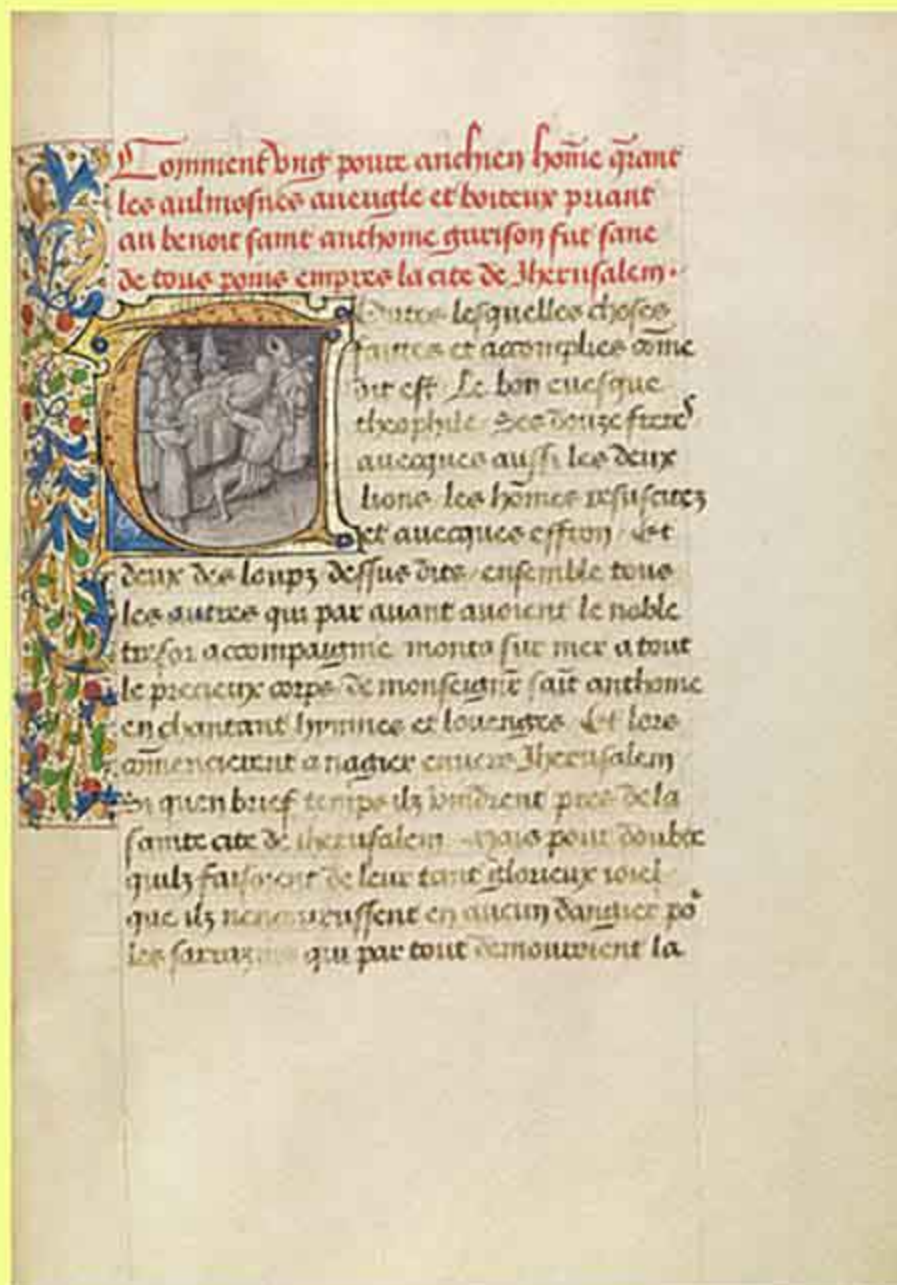 Comment vng poure anchien hom̄e q̄rant
les aulmosnes aueugle et boiteux priant
au benoit saint anthoine garison fut sane
de tous poins empres la cite de Jherusalem.
Outre lesquelles choses
faittes et accomplies com̄e
dit est. Le bon euesque
theophile. Ses douze freres
auecques aussi les deux
lions. les hom̄es resuscitez
et auecques effron. Et
deux des loupz dessus dits. ensemble tous
les autres qui par auant auoient le noble
tresor accompaignie. monta sur mer a tout
le precieux corps de monseign̄r sai̅t anthoine
en chantant hymnes et louenges. Et lors
com̄encierent a nagier enuers Jherusalem
Si quen brief temps ilz vindrent pres de la
sainte cite de iherusalem. Mais pour doubte
quilz faisoient de leur tant glorieux ioiel
que ilz nencourussent en aucun dangier po
les sarrazins qui par tout demouroient la